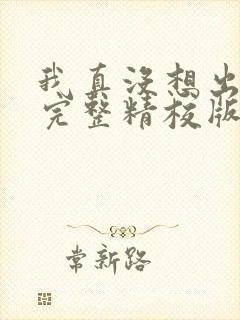 我真没想出
完整精校版
常新路